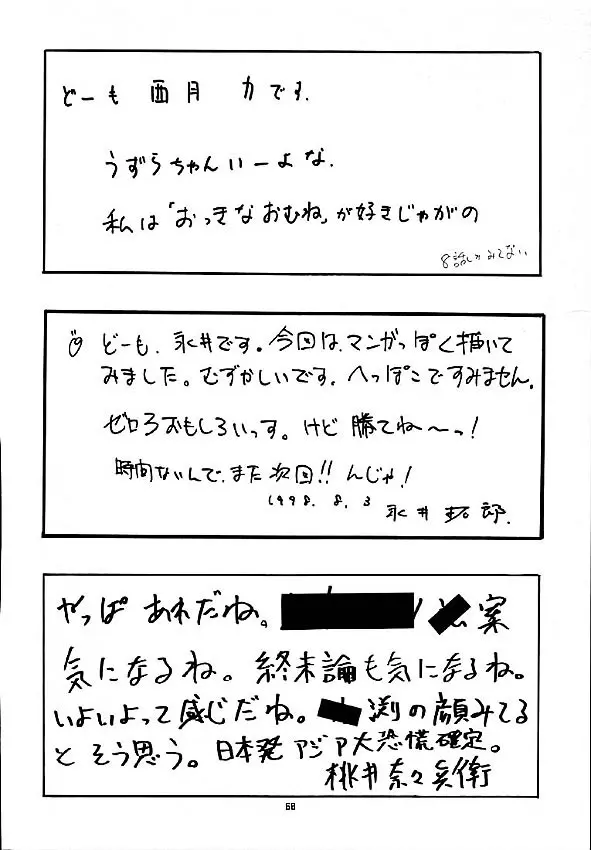 どーも 酉月 力です.
うずらちゃんいーよな.
私は「おっきなおむね」が好きじゃがの
8話しかみてない
どーも、永井です。今回は、マンガっぽく描いて
みました。むずかしいです。へっぽこですみません。
ゼロ3おもしろいっす。けど 勝てね〜っ!
時間ないんで、また次回!! んじゃ!
1998. 8. 3
永井 拓郎.
やっぱ あれだね。 案
気になるね。終末論も気になるね。
いよいよって感じだね。 渕の顔みてる
と そう思う。日本発 アジア大恐慌確定。
桃井奈々兵衛
68